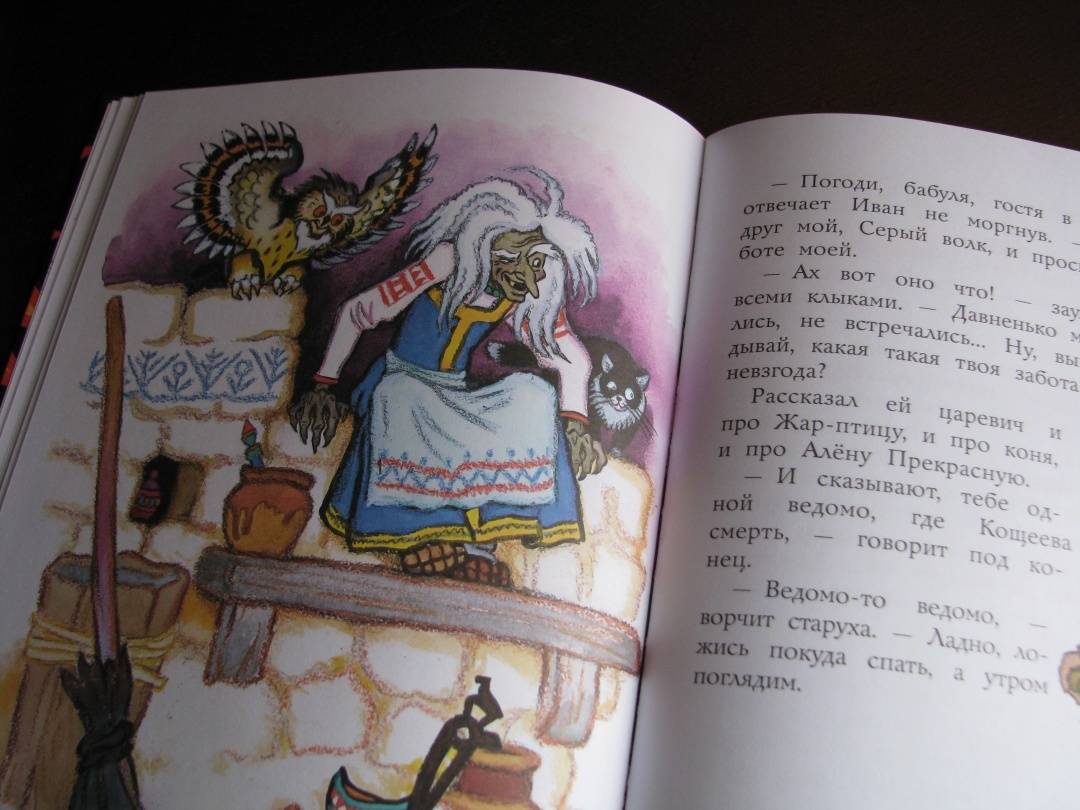 — Погоди, бабуля, гостя в
отвечает Иван не моргнув. —
друг мой, Серый волк, и
боте моей.
— Ах вот оно что! —
всеми клыками. — Давненько
лись, не встречались... Ну,
дывай, какая такая твоя забота
невзгода?
Рассказал ей царевич и
про Жар-птицу, и про коня,
и про Алёну Прекрасную.
— И сказывают, тебе од-
ной ведомо, где Кощеева
смерть, — говорит под ко-
нец.
— Ведомо-то ведомо, —
ворчит старуха. — Ладно, ло-
жись покуда спать, а утром
поглядим.